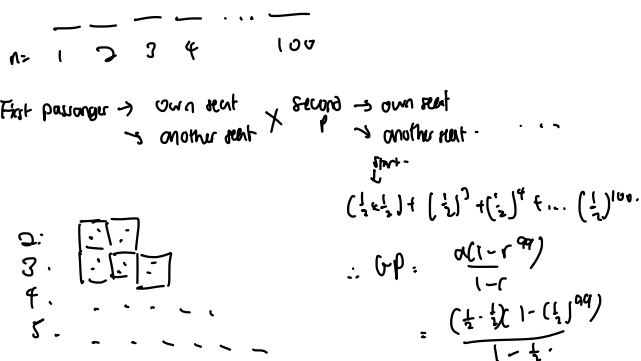 n= 1 2 3 4 ... 100
First passanger → own seat
↘ another seat
× second p → own seat
↘ another seat. ...
start.
↓
(½×½) + (½)³ + (½)⁴ + ... (½)¹⁰⁰.
2:
3.
4. . . . .
5. - - - - -
∴ GP: a(1-r⁹⁹)/1-r
= (½·½)(1-(½)⁹⁹)/1-½.